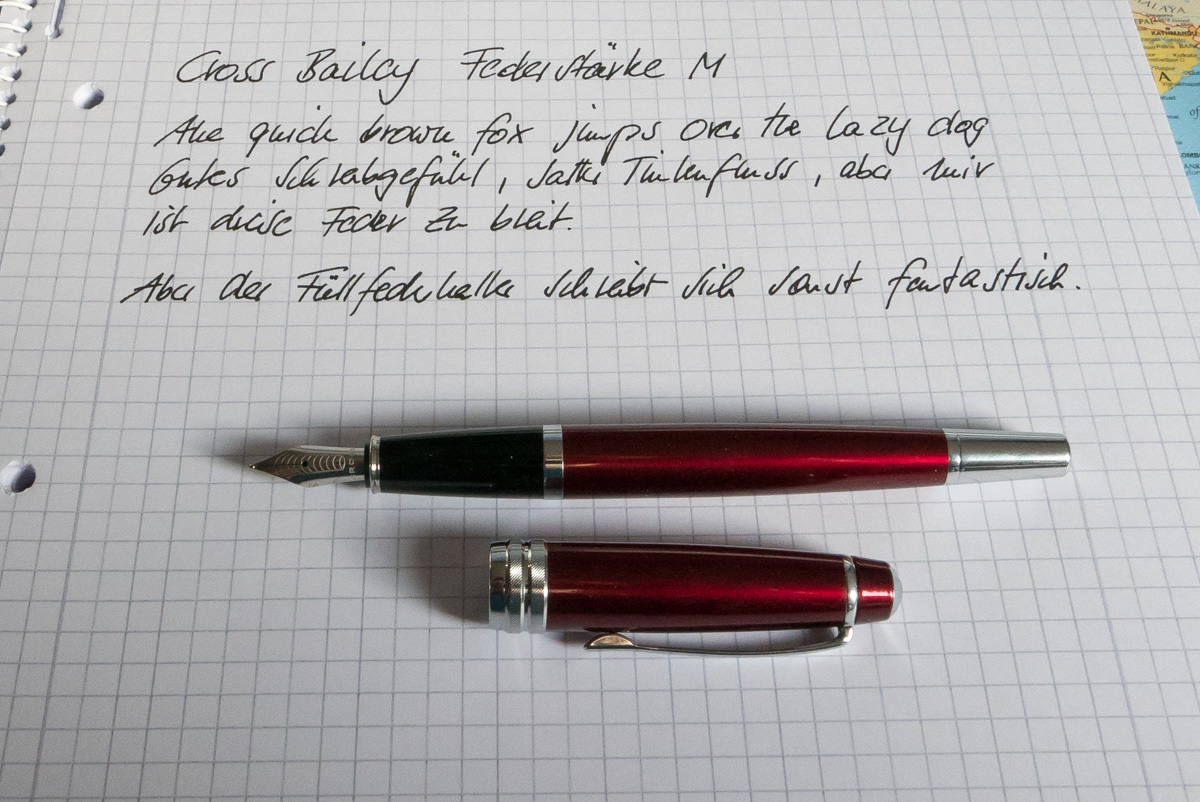 Cross Bailey Federstärke M
The quick brown fox jumps over the lazy dog
Gutes Schreibgefühl, satter Tintenfluss, aber mir
ist diese Feder zu breit.
Aber der Füllfederhalter schreibt sich sonst fantastisch.
KATHMANDU